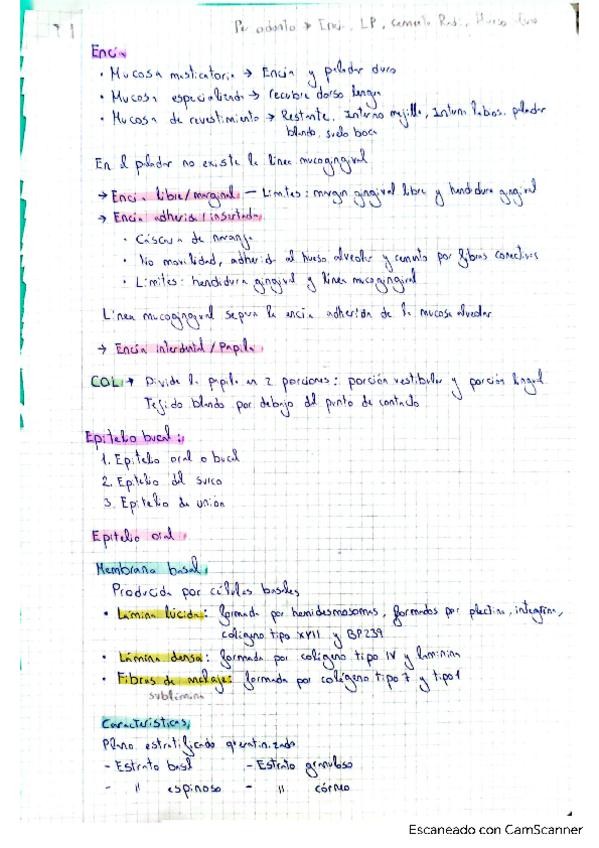 T1 Periodonto → Encía, LP, Cemento Radi, Hueso
Encía
· Mucosa masticatoria → Encía y paladar duro
· Mucosa especializada → recubre dorso lengua
· Mucosa de revestimiento → Restante. Interno mejilla, Interno labios, paladar
blando, suelo boca
En el paladar no existe la línea mucogingival
→ Encía libre/marginal - Límites: margin gingival libre y hendidura gingival
→ Encía adherida/insertada
· Cáscara de naranja
· No movilidad, adherida al hueso alveolar y cemento por fibras conectivas
· Límites: hendidura gingival y línea mucogingival
Línea mucogingival separa la encía adherida de la mucosa alveolar
→ Encía interdental/Papila
COL → Divide la papila en 2 porciones: porción vestibular y porción lingual
Tejido blando por debajo del punto de contacto
Epitelio bucal:
1. Epitelio oral o bucal
2. Epitelio del surco
3. Epitelio de unión
Epitelio oral
Membrana basal
Producida por células basales
· Lámina lúcida: formada por hemidesmosomas, formados por plectina, integrina,
colágeno tipo XVII y BP239
· Lámina densa: formada por colágeno tipo IV y laminina
· Fibras de anclaje: formada por colágeno tipo 7 y tipo 1
sublámina
Características
Plano estratificado queratinizado
- Estrato basal - Estrato granuloso
- " espinoso - " córneo
Escaneado con CamScanner